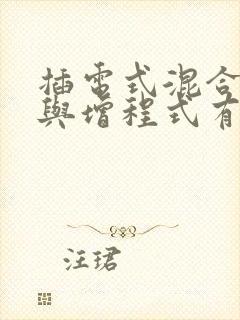 插電式混合
與增程式有
汪珺